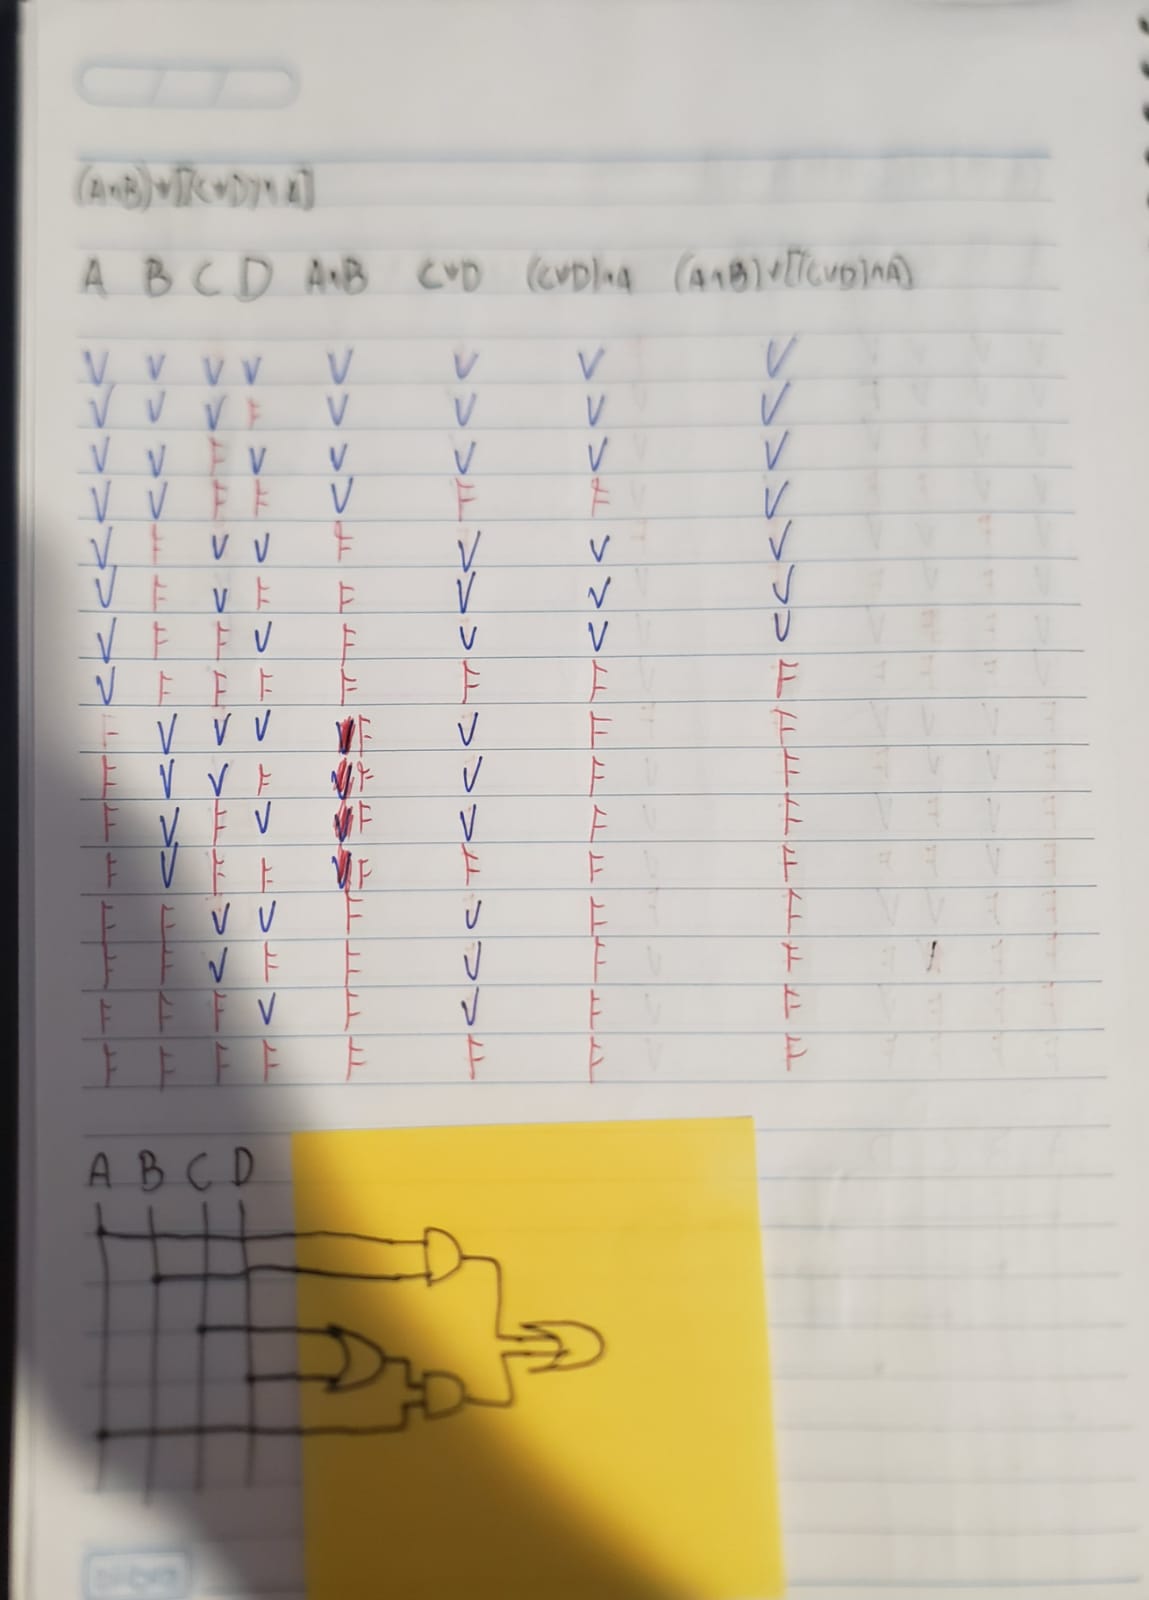 (A∧B)∨[(C∨D)∧A]
A B C D A∧B C∨D (C∨D)∧A (A∧B)∨[(C∨D)∧A]
V V V V V V V V
V V V F V V V V
V V F V V V V V
V V F F V F F V
V F V V F V V V
V F V F F V V V
V F F V F V V V
V F F F F F F F
F V V V F V F F
F V V F F V F F
F V F V F V F F
F V F F F F F F
F F V V F V F F
F F V F F V F F
F F F V F V F F
F F F F F F F F
A B C D